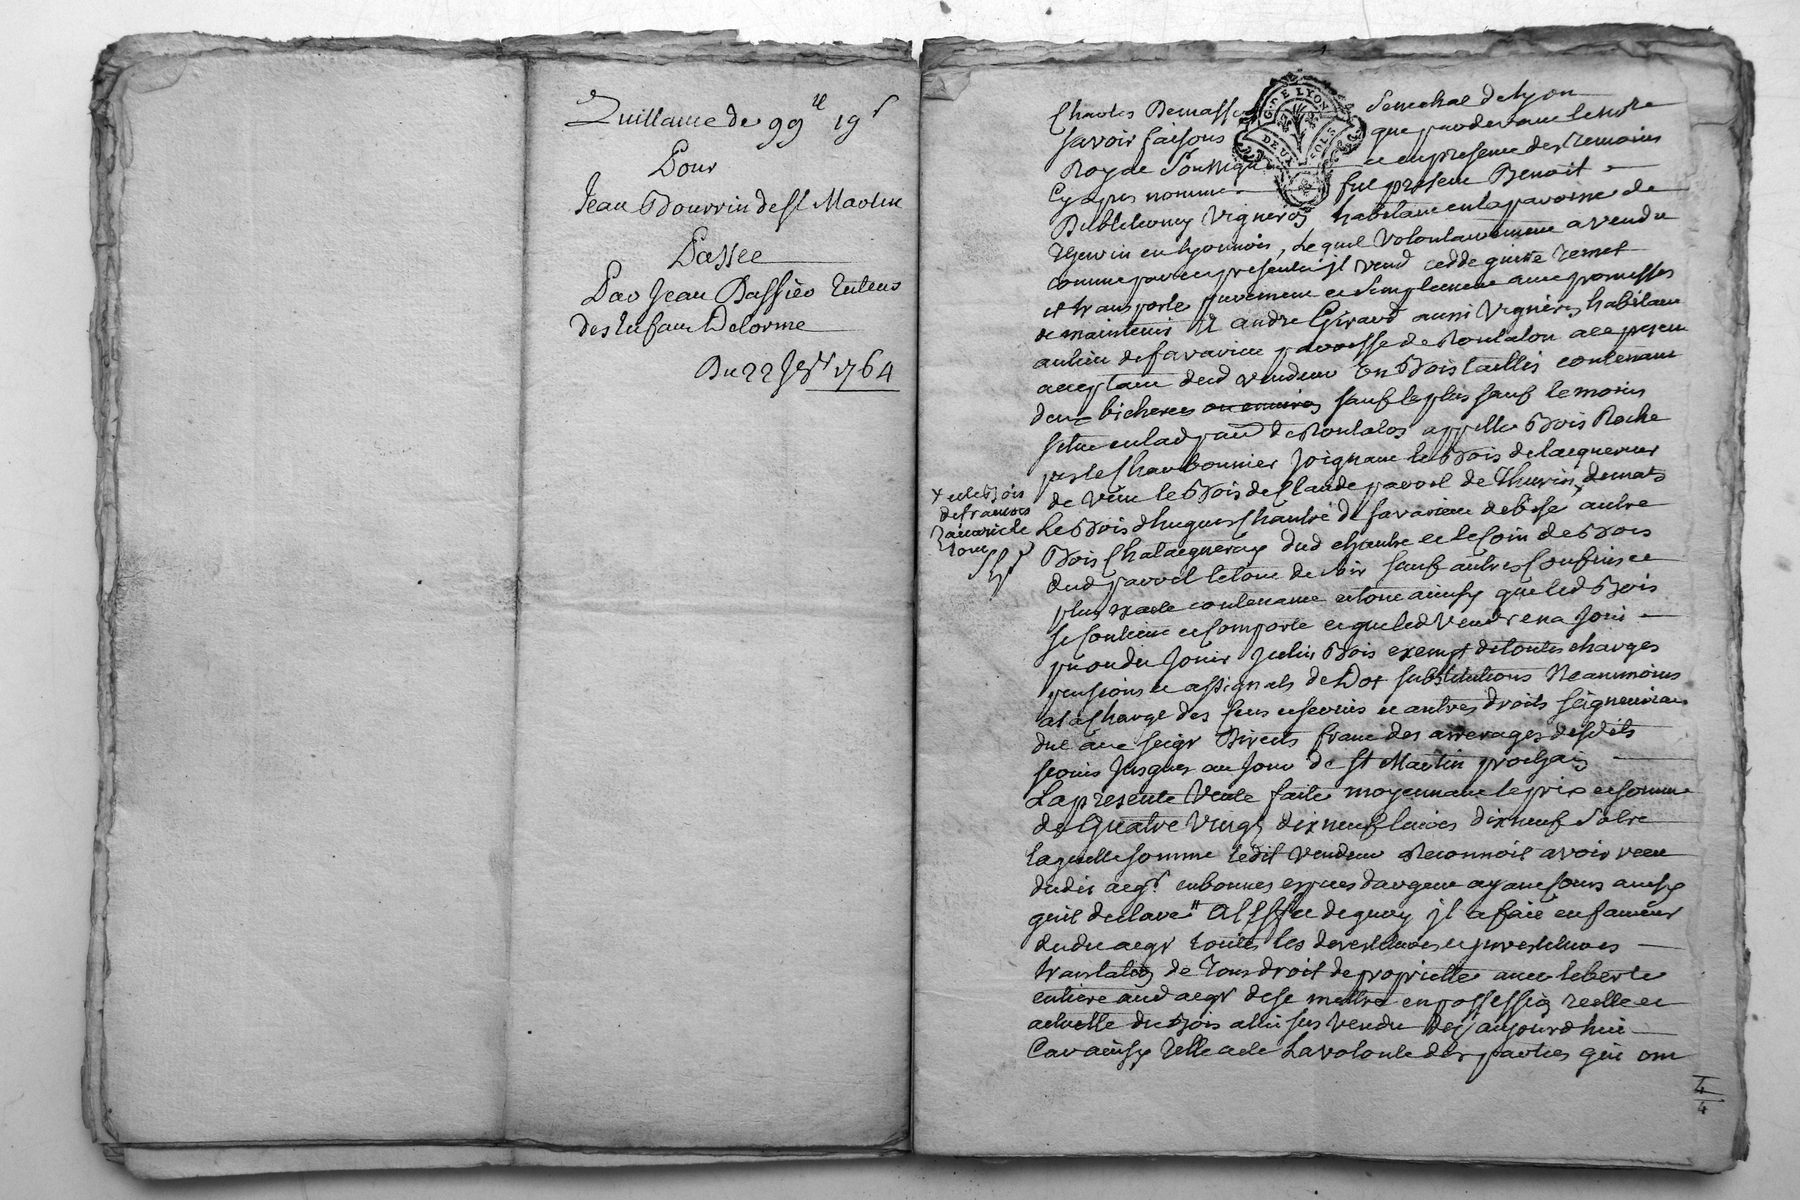 Quittance de 99tt 19s
Pour
Jean Bourrin de St Martin
Passée
Par Jean Bassieo Tuteur
des Enfans Delorme
Du 22 Jer 1764
G. DE LYON
DEUX SOLS
Charles Demasse Senechal de Lyon
Savoir faisons que pardevant le no.re
Royal Soussigné et en presence des temoins
Cy apres nommé fut present Benoit
vigneron habitant en la paroisse de
Thurin en Lyonnois, Lequel volontairement a vendu
comme par ces presentes il vend cedde quitte remet
et transporte purement et simplement avec promesses
de maintenir a andre Giraud aussi vigneron habitant
au lieu de favarieu parroisse de Rontalon acce present
acceptant dud vendeur Un Bois taillis contenant
deux bicherees ou environ sauf le plus sauf le moins
situe en lad parr de Rontalon appelle Bois Roche
Charbonnier Joignant le Bois de lacquereur
de vent le Bois de Claude parrol de Thurin, de mat
Le Bois dhugues Chantre de favarieu de bise autre
Bois dud chantre et le Coin de Bois
dud parrol le tout de soir sauf autres Confins et
plus vraie contenance et tout ainsy que led Bois
se Contient et Comporte et que led vendr en a Joui
pu ou du Jouir Jcelui Bois exempt de toutes charges
pensions et assignats de Dot substitutions Neanmoins
a la Charge des Cens et servis et autres droits seigneuriaux
due aux seigr Directs franc des arrerages desdits
servis Jusques au Jour de St Martin prochain
La presente Vente faite moyennant le prix et somme
de Quatre Vingt dix neuf livres dix neuf Sols
laquelle somme ledit Vendeur Reconnoit avoir receu
dudit acqr en bonnes especes dargent ayant Cours ainsy
quil declare Al Effet de quoy jl a fait en faveur
dudit acqr toutes les devestitures et investitures
translation de Tous droit de proprietté avec liberté
entiere aud acqr de se mettre en possession reelle et
actuelle du Bois alui sus vendu des aujourdhui
Car ainsy Telle a ete La volonté des parties qui ont
+ et le Bois
de francois
4
4